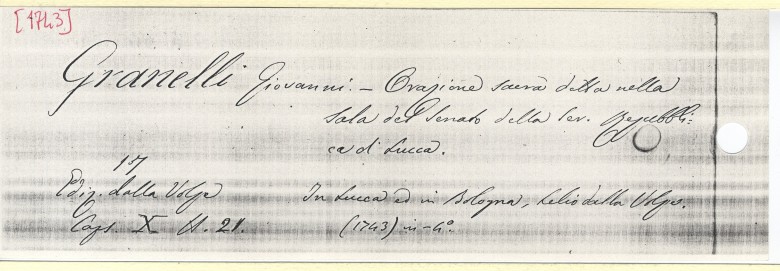 [1743]
Granelli Giovanni. – Orazione sacra detta nella
sala del Senato della Ser. Repubbli-
ca di Lucca.
17
Ediz. dalla Volpe
Caps. X N. 21.
In Lucca ed in Bologna, Lelio dalla Volpe.
(1743) in-4º.